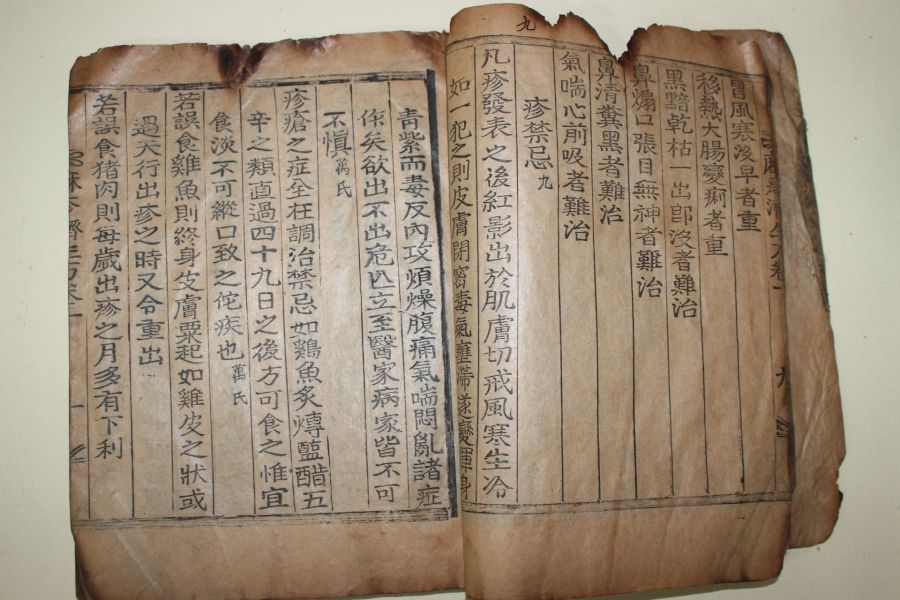 九
冒風寒沒早者重
移熱大腸變痢者重
黑黯乾枯一出卽沒者難治
鼻煽口張目無神者難治
鼻清糞黑者難治
氣喘心前吸者難治
疹禁忌 九
凡疹發表之後紅影出於肌膚切戒風寒生冷
如一犯之則皮膚閉密毒氣壅滯遂變渾身
靑紫而毒反內攻煩燥腹痛氣喘悶亂諸症
作矣欲出不出危亾立至醫家病家皆不可
不愼 萬氏
疹瘡之症全在調治禁忌如鷄魚炙煿鹽醋五
辛之類直過四十九日之後方可食之惟宜
食淡不可縱口致之佗疾也 萬氏
若誤食雞魚則終身皮膚粟起如雞皮之狀或
過天行出疹之時又令重出
若誤食猪肉則每歲出疹之月多有下利